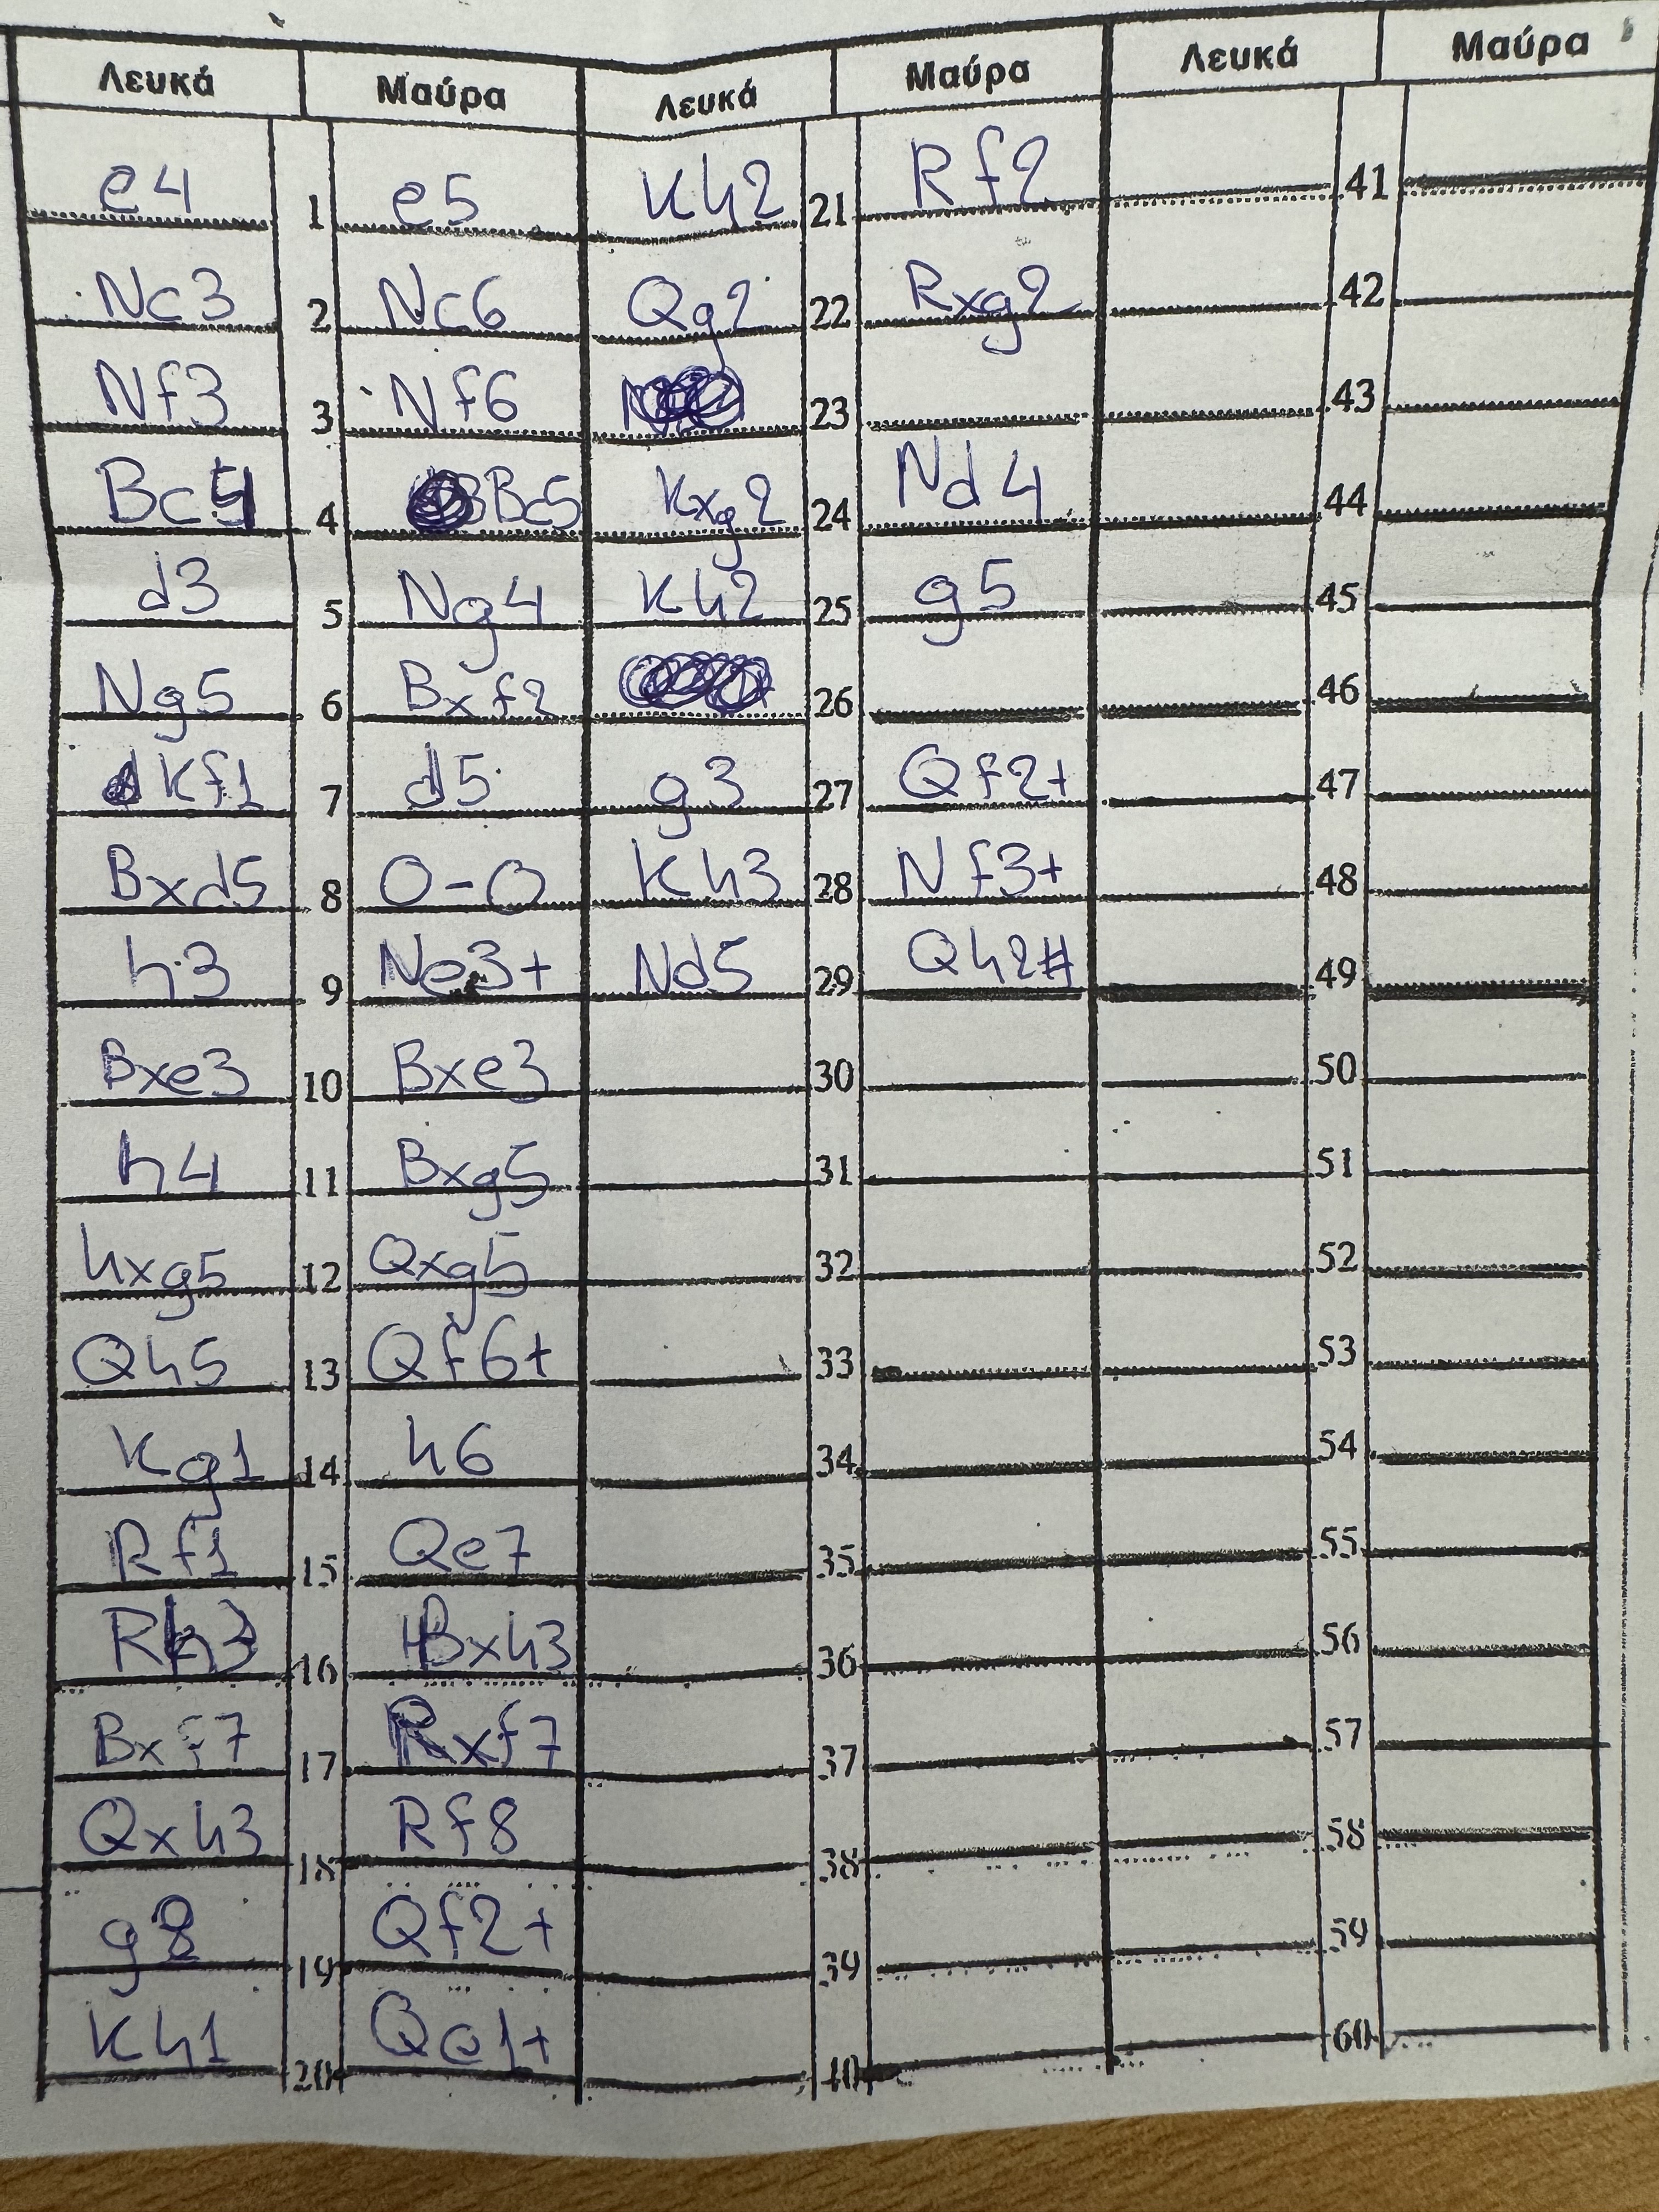 Λευκά Μαύρα Λευκά Μαύρα Λευκά Μαύρα
e4 1 e5 Kh2 21 Rf2 41
Nc3 2 Nc6 Qg2 22 Rxg2 42
Nf3 3 Nf6 23 43
Bc4 4 Bc5 Kxg2 24 Nd4 44
d3 5 Ng4 Kh2 25 g5 45
Ng5 6 Bxf2 26 46
Kf1 7 d5 g3 27 Qf2+ 47
Bxd5 8 O-O Kh3 28 Nf3+ 48
h3 9 Ne3+ Nd5 29 Qh2# 49
Bxe3 10 Bxe3 30 50
h4 11 Bxg5 31 51
hxg5 12 Qxg5 32 52
Qh5 13 Qf6+ 33 53
Kg1 14 h6 34 54
Rf1 15 Qe7 35 55
Rh3 16 Bxh3 36 56
Bxf7 17 Rxf7 37 57
Qxh3 18 Rf8 38 58
19 Qf2+ 39 59
Kh1 20 Qe1+ 40 60